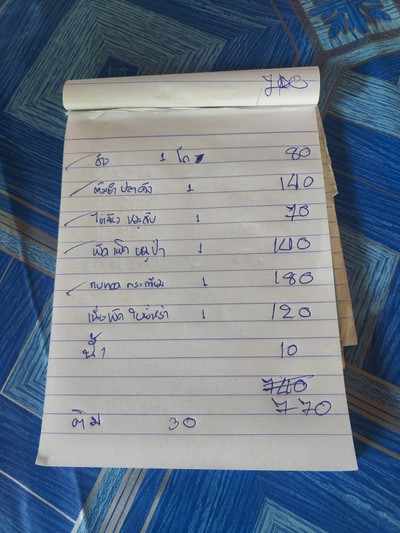 ข้าว 1 โถ 80
ต้มยำ ปลาคัง 1 140
ไข่เจียว หมูสับ 1 70
ผัดเผ็ด หมูป่า 1 140
กบทอด กระเทียม 1 180
เนื้อผัด 1 120
น้ำ 10
740
770
ติม 30